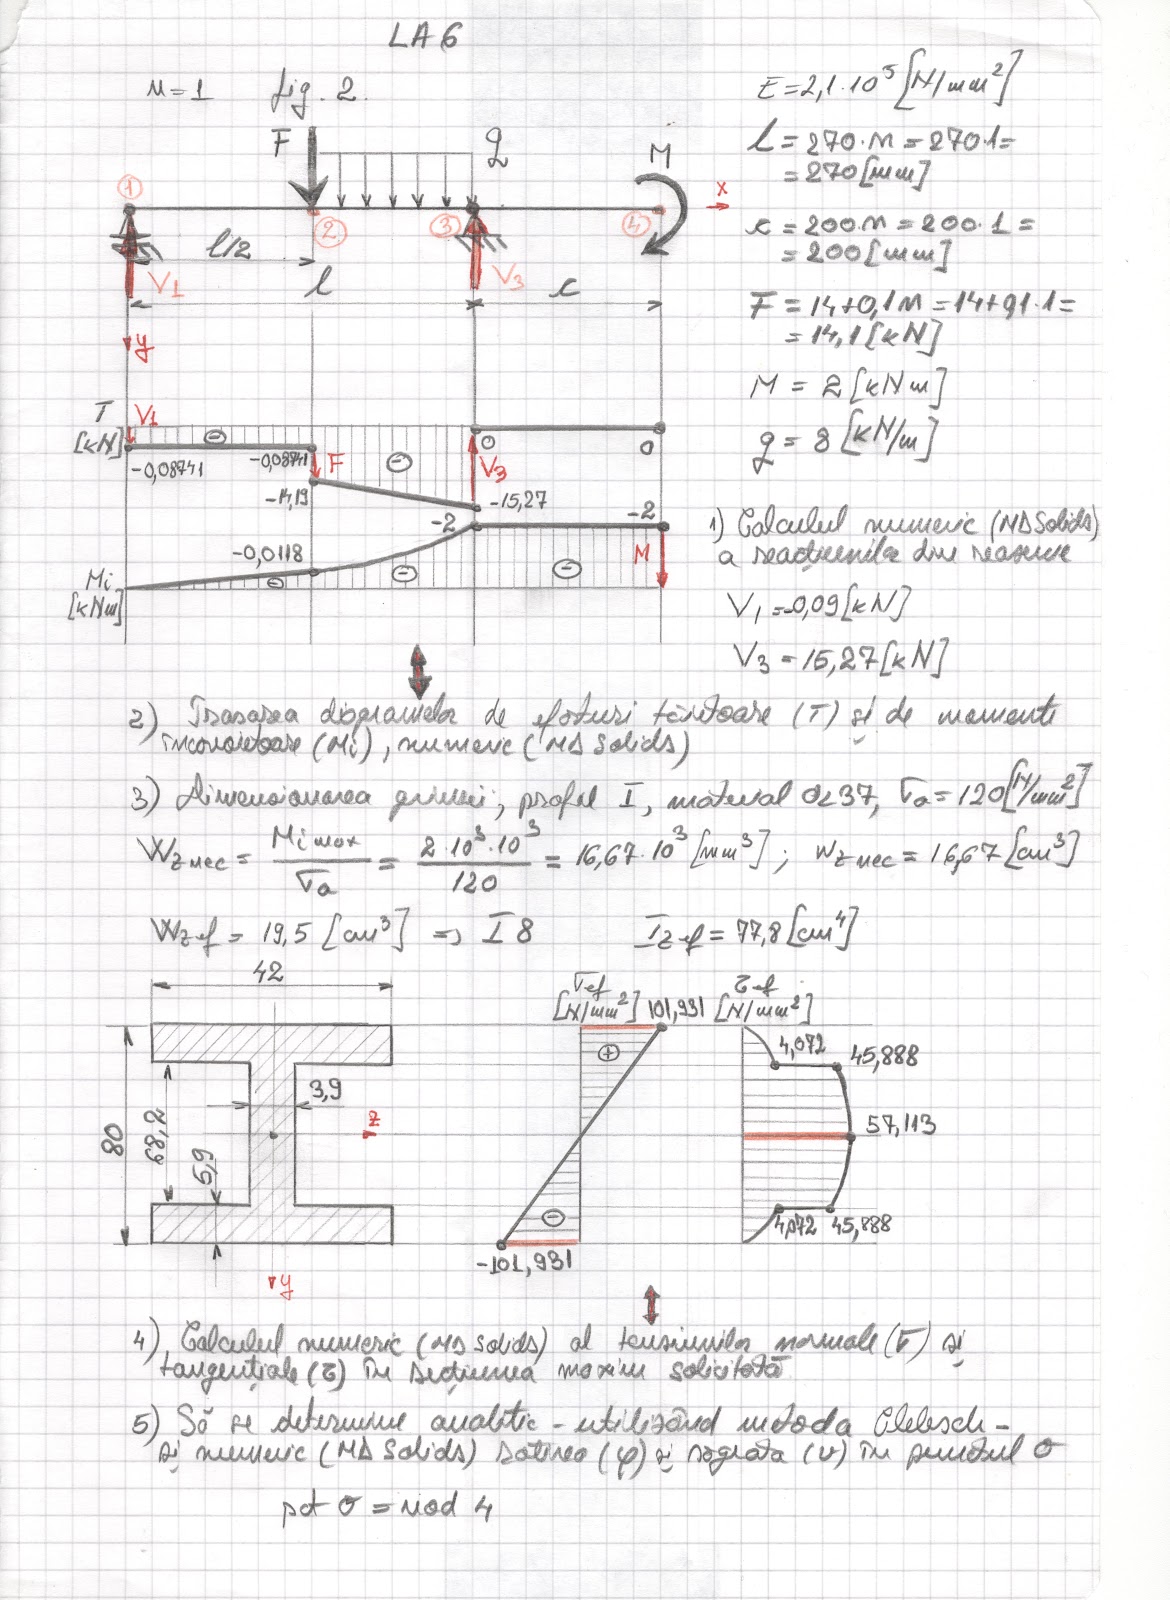 LA6
n=1 fig. 2.
E=2,1·10⁵ [N/mm²]
l=270·n=270·1=
=270[mm]
c=200·n=200·1=
=200[mm]
F=14+0,1n=14+0,1·1=
=14,1[kN]
M=2[kNm]
q=8[kN/m]
F q M x
1 2 3 4
l/2
V1 l V3 c
y
T
[kN]
V1
-0,08741 -0,08741 F
-14,19
V3 -15,27
0 0
-2 -2
-0,0118
M
Mi
[kNm]
1) Calculul numeric (MDSolids)
a reacțiunilor din reazeme
V1=-0,09[kN]
V3=15,27[kN]
2) Trasarea diagramelor de eforturi tăietoare (T) și de momente
încovoietoare (Mi), numeric (MDSolids)
3) Dimensionarea grinzii, profil I, material OL37, σa=120[N/mm²]
Wz nec = Mi max / σa = 2·10³·10³ / 120 = 16,67·10³ [mm³]; Wz nec = 16,67 [cm³]
Wz ef = 19,5 [cm³] => I8 Iz ef = 77,8[cm⁴]
42
80
68,2
5,9
3,9
z
y
σef
[N/mm²] 101,931
-101,931
τef
[N/mm²]
4,072 45,888
57,113
4,072 45,888
4) Calculul numeric (MDSolids) al tensiunilor normale (σ) și
tangențiale (τ) în secțiunea maxim solicitată
5) Să se determine analitic - utilizând metoda Clebsch -
și numeric (MDSolids) rotirea (φ) și săgeata (v) în punctul O
pct O = nod 4